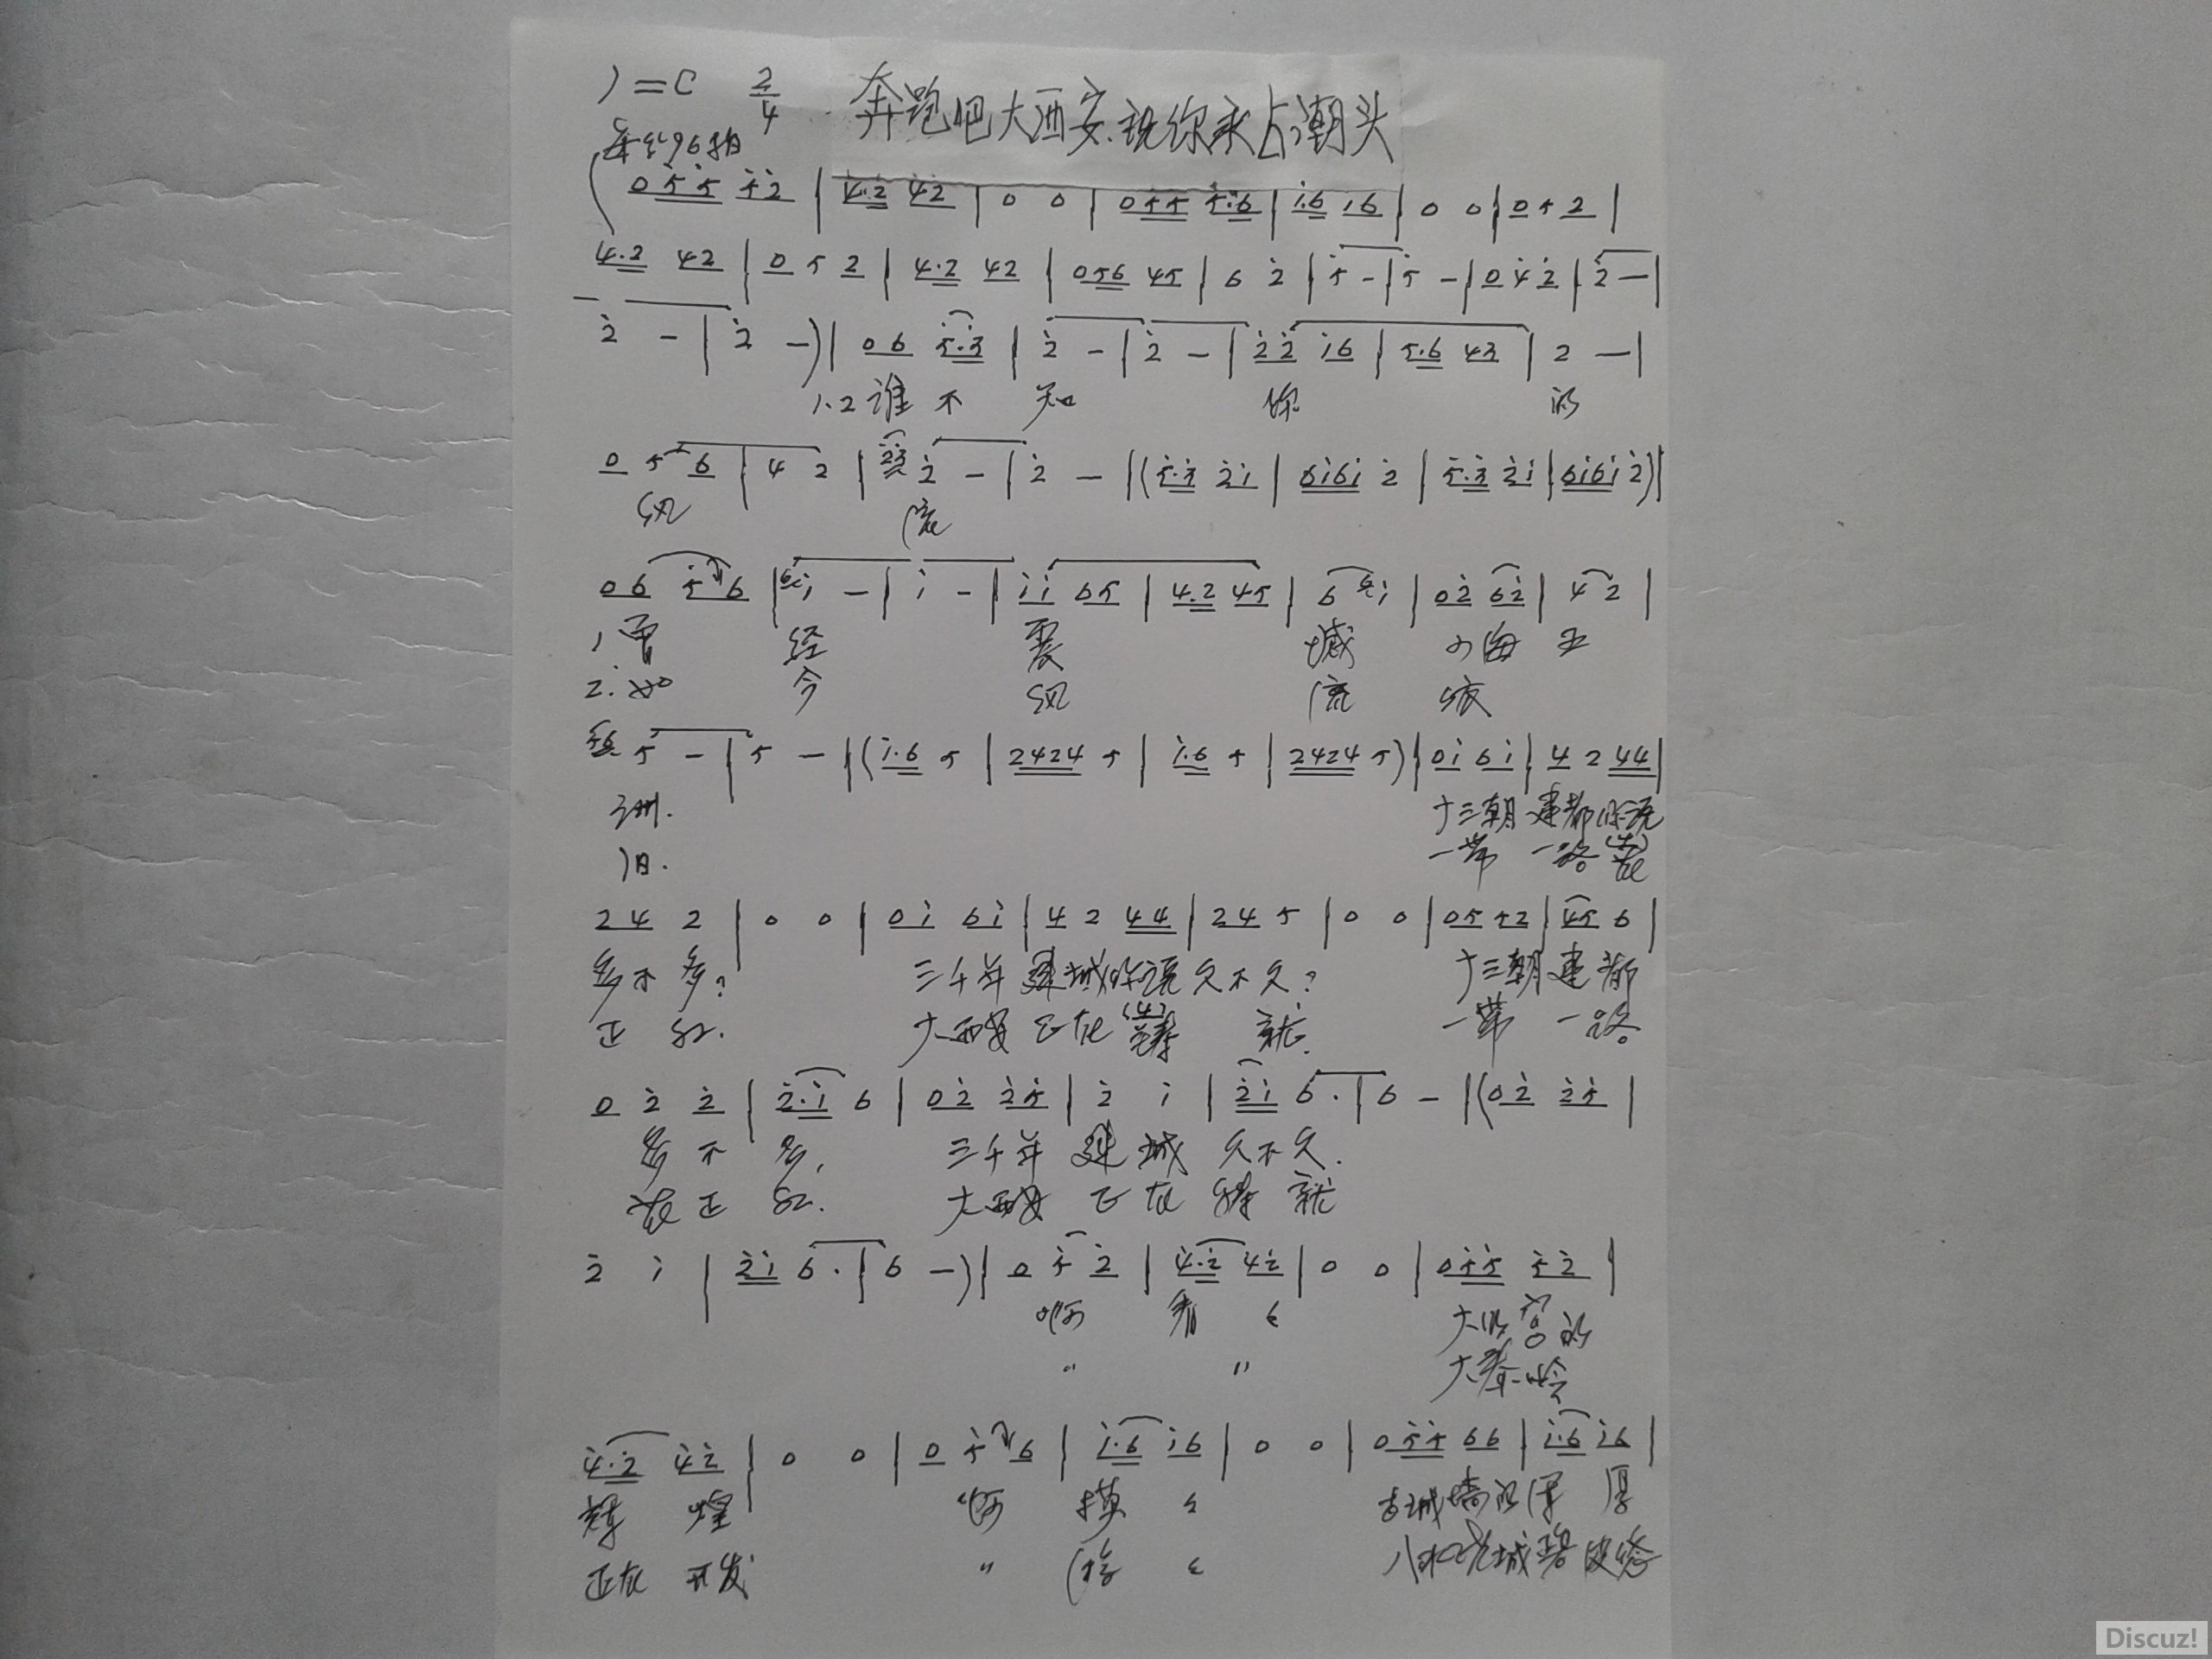 1=C 2/4 奔跑吧大西安.祝你永占潮头
每分96拍
(0 5̇5̇ 5̇2̇ | 4̇.2̇ 4̇2̇ | 0 0 | 055 5.6 | i.6 i6 | 0 0 | 0 5 2 |
4.2 42 | 0 5 2 | 4.2 42 | 056 45 | 6 2̇ | 5̇ - | 5̇ - | 0 4̇ 2̇ | 2̇ - |
2̇ - | 2̇ -) | 06 5̇.3̇ | 2̇ - | 2̇ - | 2̇2̇ i6 | 5.6 43 | 2 - |
1.2 谁 不 知 你 的
0 5 6 | 4 2 | 2̇3̇ 2̇ - | 2̇ - | (5̇.3̇ 2̇i | 6i6i 2̇ | 5̇.3̇ 2̇i | 6i6i 2̇) |
风 流
06 5̇6 | i - | i - | ii 65 | 4.2 45 | 6 i | 02̇ 62̇ | 4 2 |
1.曾 经 震 撼 了海 五
2.如 今 风 流 依
5 - | 5 - | (i.6 5 | 2424 5 | i.6 5 | 2424 5) | 0i 6i | 4 2 44 |
洲. 十三朝 建都 你说
旧. 一带 一路
24 2 | 0 0 | 0i 6i | 4 2 44 | 24 5 | 0 0 | 05 52 | 45 6 |
多不 多? 三千年 建城你说 久不 久? 十三朝 建 都
正 红. 大西安 正在 (4) 就. 一带 一路
0 2̇ 2̇ | 2̇.i 6 | 02̇ 2̇5̇ | 2̇ i | 2̇i 6. | 6 - | (02̇ 2̇5̇ |
多 不 多, 三千年 建 城 久 不 久.
正 红. 大西安 正 在 就
2̇ i | 2̇i 6. | 6 -) | 0 5̇ 2̇ | 4̇.2̇ 4̇2̇ | 0 0 | 05̇5̇ 5̇2̇ |
啊 看 大明宫的
" " 大秦岭
4̇.2̇ 4̇2̇ | 0 0 | 0 5̇ 6 | i.6 i6 | 0 0 | 05̇5̇ 66 | i.6 i6 |
辉 煌 啊 摸 古城墙的浑 厚
正在 开发 " 八水绕城碧波
Discuz!